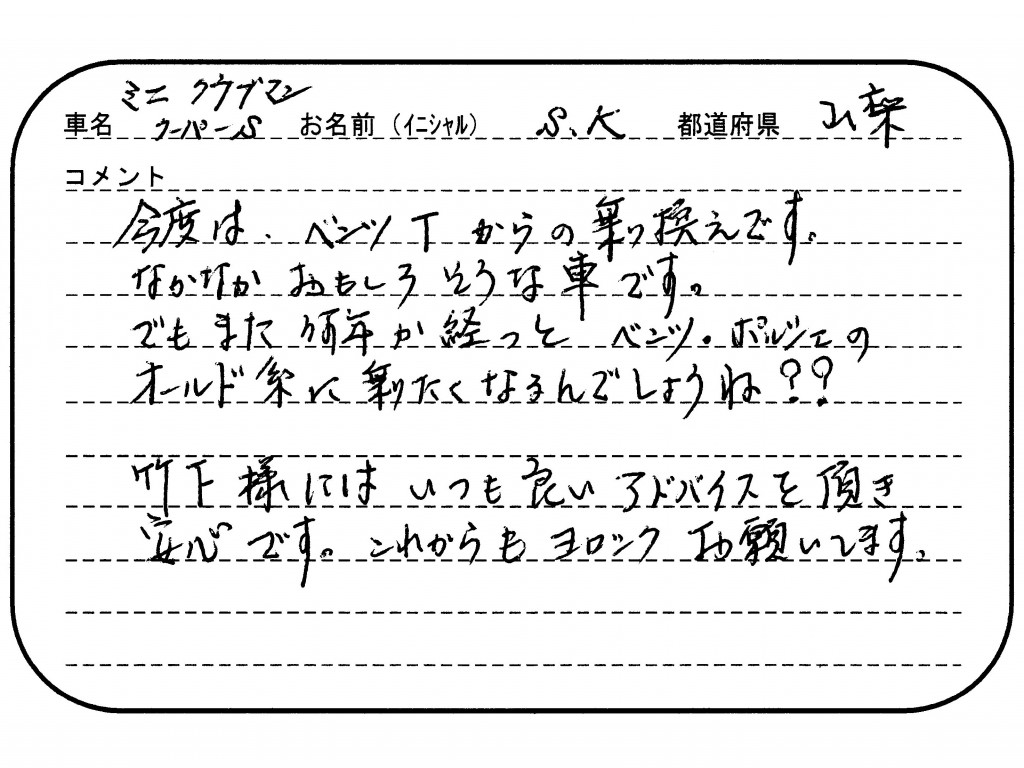 ミニ クラブマン
車名 クーパーS お名前（イニシャル） S.K 都道府県 山梨
コメント
今度は、ベンツTからの乗り換えです。
なかなかおもしろそうな車です。
でもまた何年か経つと ベンツ・ポルシェの
オールド系に乗りたくなるんでしょうね??
竹下様にはいつも良いアドバイスを頂き
安心です。これからもヨロシクお願いします。